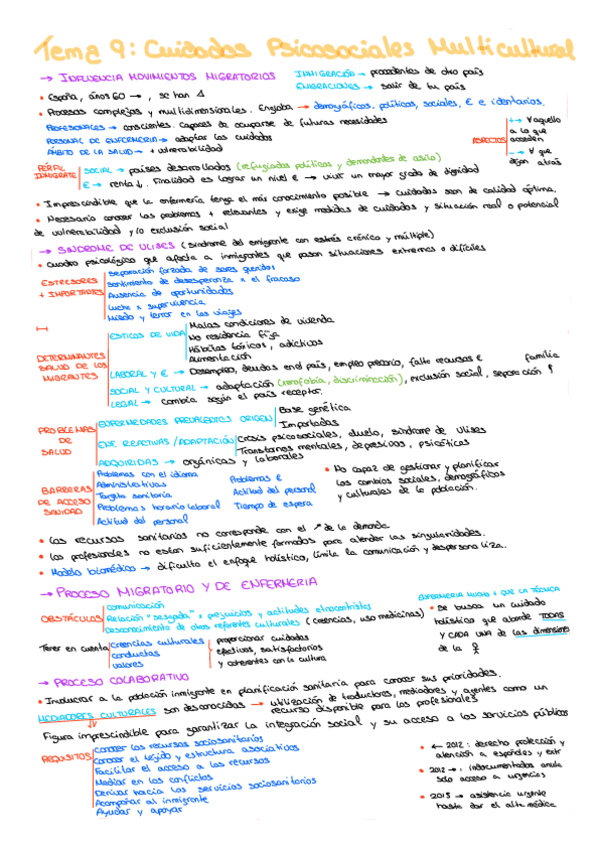 Tema 9: Cuidados Psicosociales Multicultural
→ INFLUENCIA MOVIMIENTOS MIGRATORIOS
INMIGRACIÓN → procedentes de otro país
EMIGRACIONES → salir de tu país
• España, años 60 → , se han Δ
• Procesos complejos y multidimensionales. Engloba → demográficos, políticos, sociales, € e identarios.
PROFESIONALES → conscientes. Capaces de ocuparse de futuras necesidades
PERSONAL DE ENFERMERIA → adaptar los cuidados
ÁMBITO DE LA SALUD → + vulnerabilidad
ASPECTOS
+ → ∀ aquello a lo que acceden
- → ∀ que dejan atrás
PERFIL INMIGRANTE
SOCIAL → países desarrollados (refugiados políticos y demandantes de asilo)
€ → renta ↓. Finalidad es lograr un nivel € → vivir un mayor grado de dignidad
• Imprescindible que la enfermería tenga el más conocimiento posible → cuidados sean de calidad óptima.
• Necesario conocer los problemas + relevantes y exige medidas de cuidados y situación real o potencial
de vulnerabilidad y/o exclusión social
→ SINDROME DE ULISES (Sindrome del emigrante con estrés crónico y múltiple)
• Cuadro psicológico que afecta a inmigrantes que pasan situaciones extremas o difíciles
ESTRESORES + IMPORTANTES
Separación forzada de seres queridos
Sentimiento de desesperanza x el fracaso
Ausencia de oportunidades
Lucha x supervivencia
Miedo y terror en los viajes
DETERMINANTES SALUD DE LOS MIGRANTES
ESTILOS DE VIDA
Malas condiciones de vivienda
No residencia fija
Hábitos tóxicos, adictivos
Alimentación
LABORAL Y € → Desempleo, deudas en el país, empleo precario, falta recursos €
SOCIAL Y CULTURAL → adaptación (xenofobia, discriminación), exclusión social, separación familia
LEGAL → cambia según el país receptor.
PROBLEMAS DE SALUD
ENFERMEDADES PREVALENTES ORIGEN
Base genética
Importadas
ENF. REACTIVAS/ADAPTACIÓN
Crisis psicosociales, duelo, síndrome de Ulises
Trastornos mentales, depresivos, psicóticas
ADQUIRIDAS → orgánicas y laborales
BARRERAS DE ACCESO SANIDAD
Problemas con el idioma
Administrativas
Tarjeta sanitaria
Problemas horario laboral
Actitud del personal
Problemas €
Actitud del personal
Tiempo de espera
• No capaz de gestionar y planificar
los cambios sociales, demográficos
y culturales de la población.
• Los recursos sanitarios no corresponde con el ↗ de la demanda
• Los profesionales no estan suficientemente formados para atender las singularidades.
• Modelo biomédico → dificulta el enfoque holístico, limita la comunicación y despersonaliza.
→ PROCESO MIGRATORIO Y DE ENFERMERIA
OBSTÁCULOS
Comunicación
Relación "sesgada" x prejuicios y actitudes etnocentristas
Desconocimiento de otros referentes culturales (creencias, uso medicinas)
Tener en cuenta
Creencias culturales
conductas
valores
proporcionar cuidados
efectivos, satisfactorios
y coherentes con la cultura
ENFERMERIA MUCHO + QUE LA TÉCNICA
• Se busca un cuidado
holístico que aborde TODAS
y CADA UNA de las dimensiones
de la
→ PROCESO COLABORATIVO
• Involucrar a la población inmigrante en planificación sanitaria para conocer sus prioridades.
MEDIADORES CULTURALES son desconocidos → utilización de traductores, mediadores y agentes como un
recurso disponible para los profesionales
Figura imprescindible para garantizar la integración social y su acceso a los servicios públicos
REQUISITOS
Conocer los recursos sociosanitarios
Conocer el tejido y estructura asociativos
Facilitar el acceso a los recursos
Mediar en los conflictos
Derivar hacia los servicios sociosanitarios
Acompañar al inmigrante
Ayudar y apoyar
• ← 2012: derecho protección y
atención a españoles y extr
• 2012 → : indocumentados anula
solo acceso a urgencias
• 2015 → asistencia urgente
hasta dar el alta médica